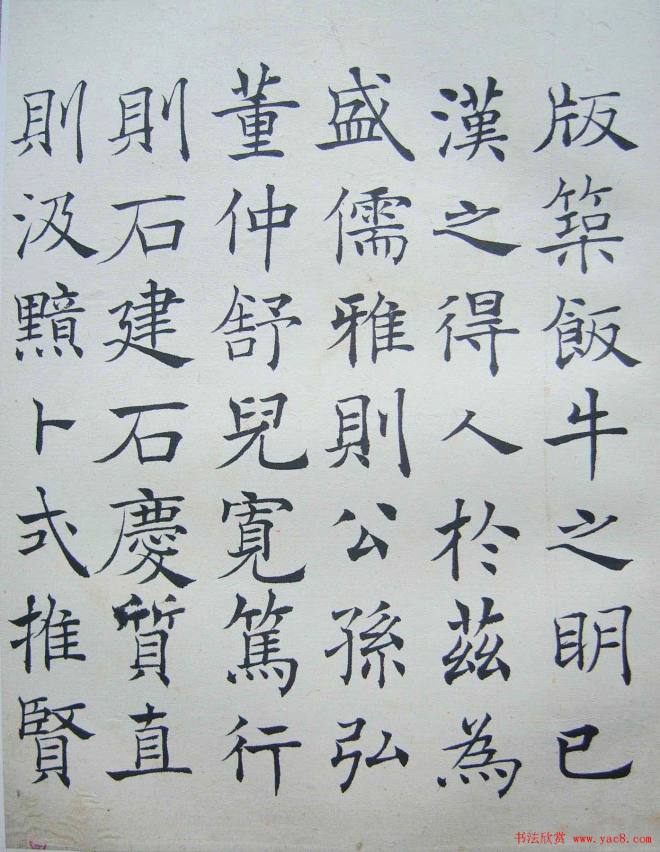 版築飯牛之明已
漢之得人於茲為
盛儒雅則公孫弘
董仲舒兒寬篤行
則石建石慶質直
則汲黯卜式推賢
书法欣赏 www.yac8.com